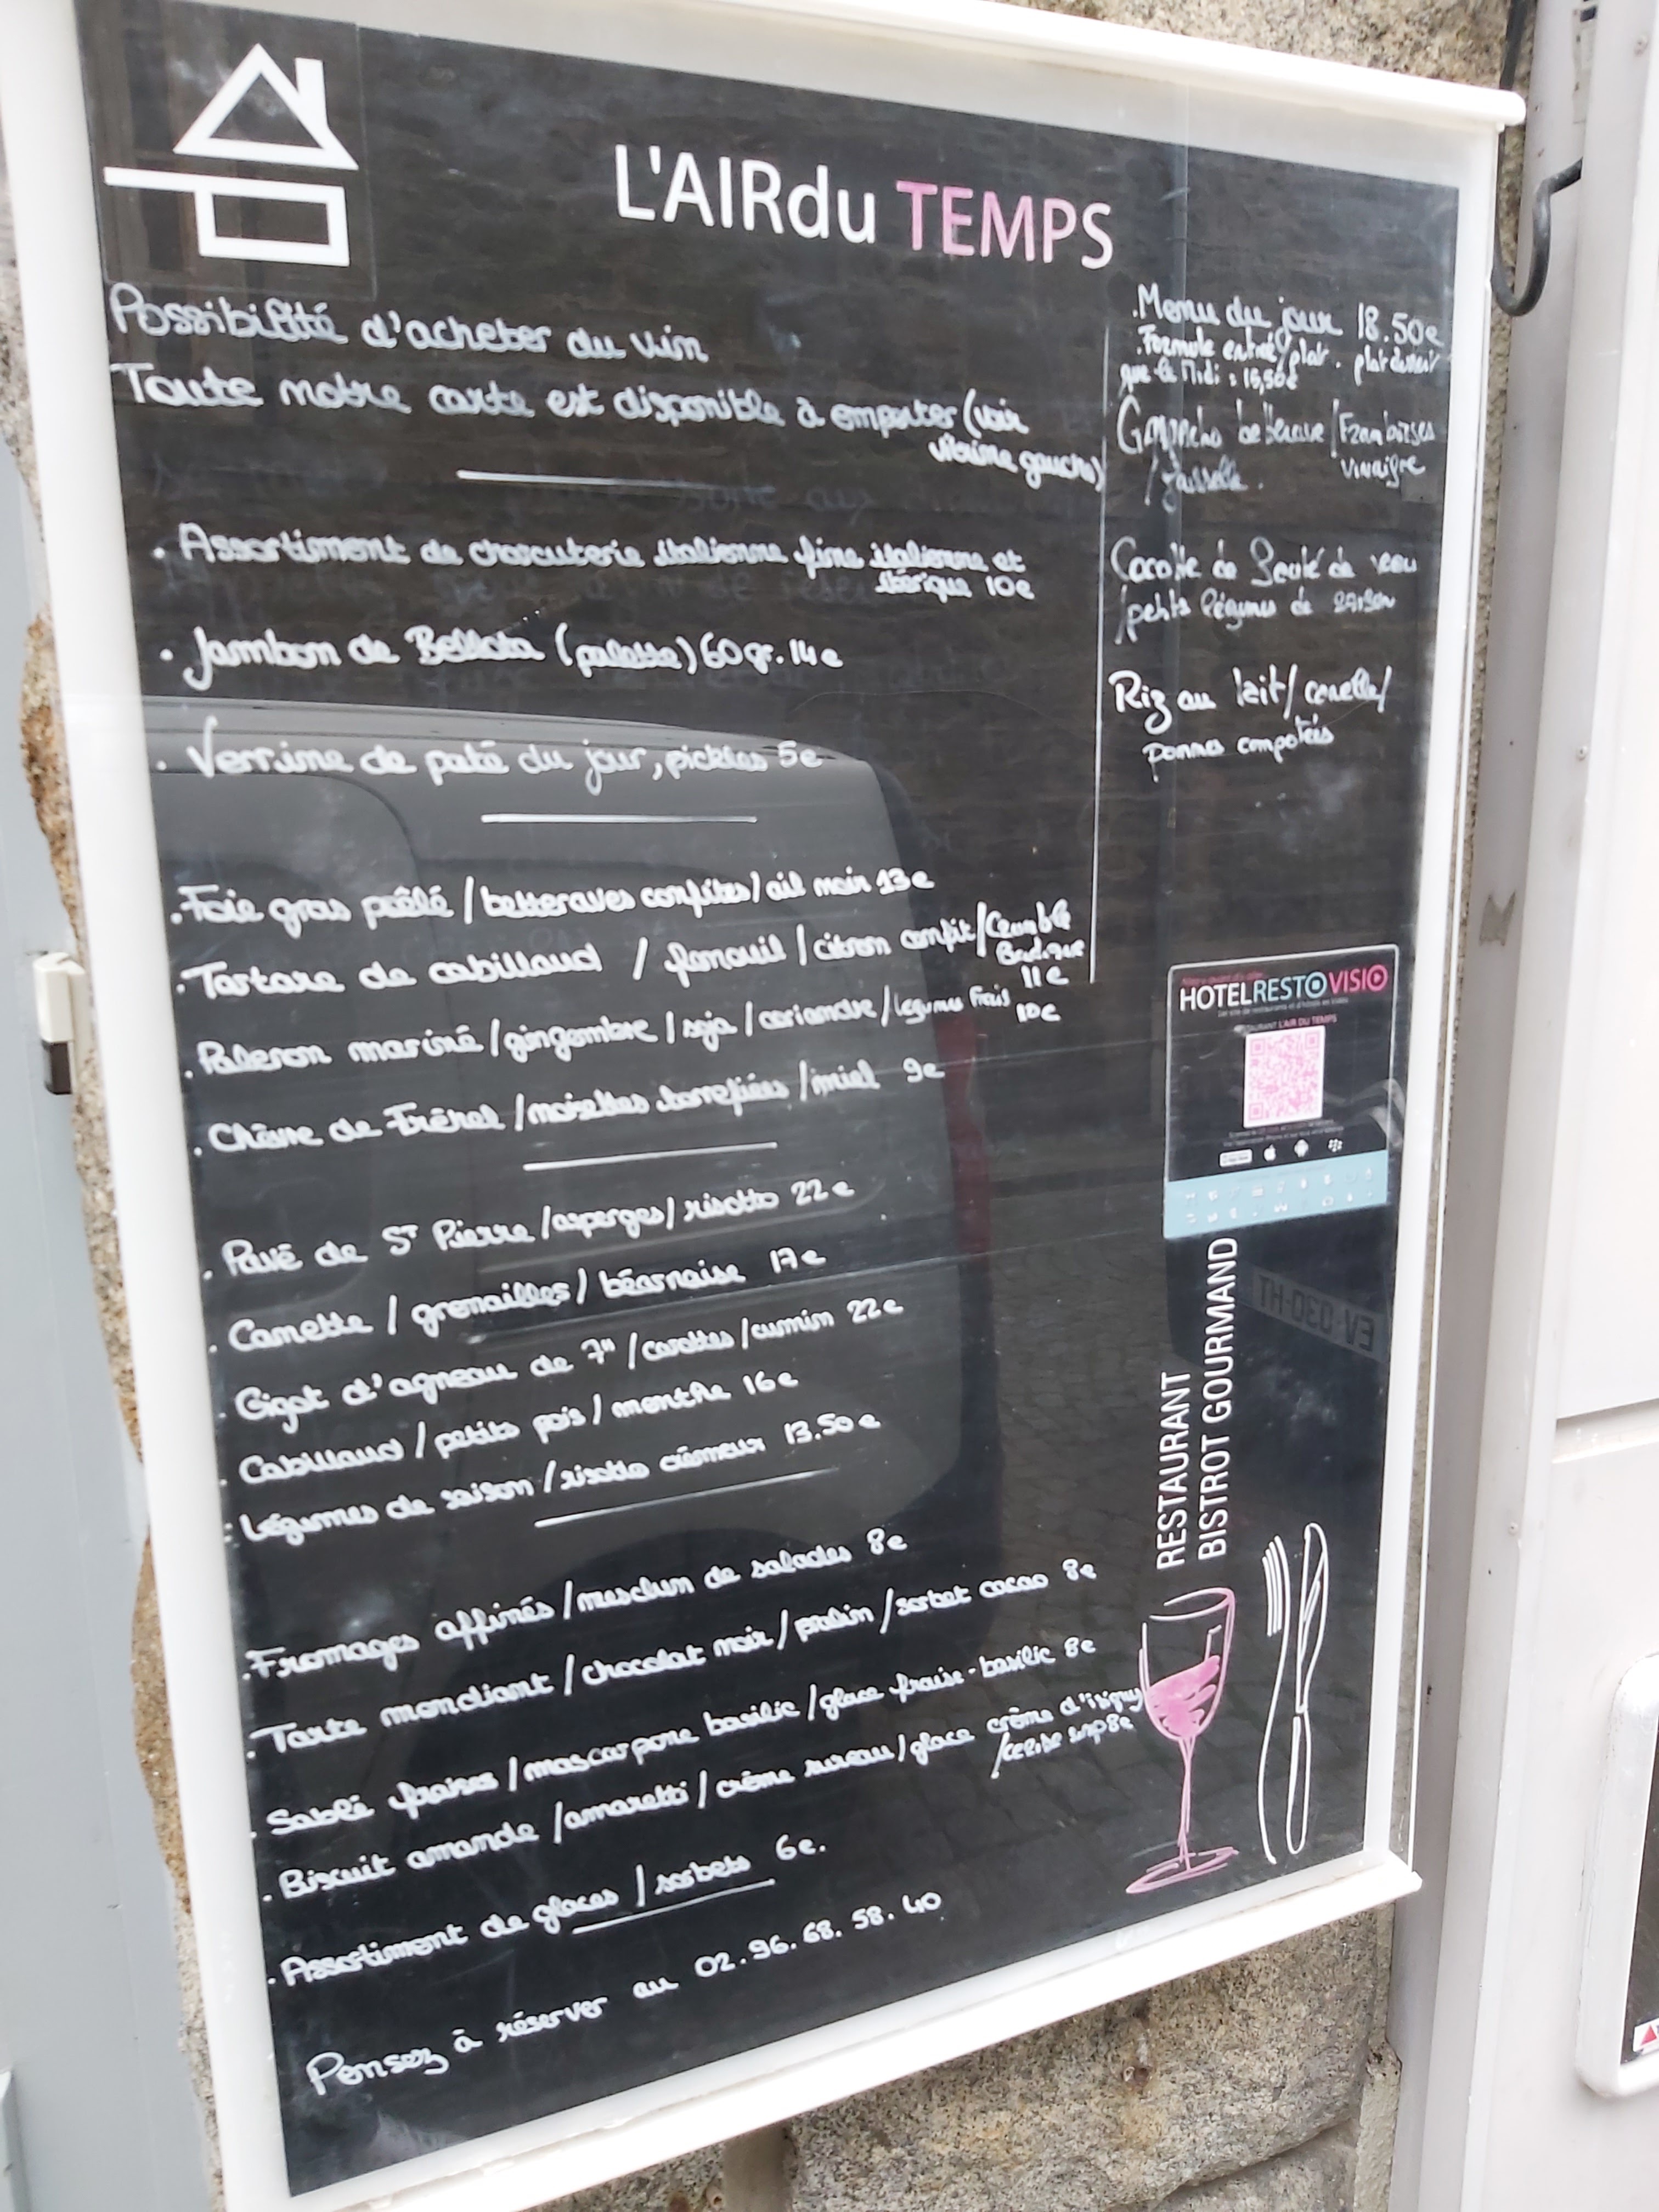 L'AIRdu TEMPS
Possibilité d'acheter du vin
Toute notre carte est disponible à emporter (voir
vitrine gauche)
. Assortiment de charcuterie italienne fine italienne et
iberique 10e
. Jambon de Bellota (palette) 60gr. 14e
. Verrine de paté du jour, pickles 5e
. Foie gras poêlé / betteraves confites / ail noir 13e
. Tartare de cabillaud / fenouil / citron confit /
11e
. Paleron mariné / gingembre / soja / coriandre / légumes Frais
10e
. Chèvre de Fréhel / noisettes torrefiées / miel 9e
. Pavé de St Pierre / asperges / risotto 22e
. Canette / grenailles / béarnaise 17e
. Gigot d'agneau de 7" / carottes / cumin 22e
. Cabillaud / petits pois / menthe 16e
. Légumes de saison / risotto crémeux 13.50e
. Fromages affinés / mesclun de salades 8e
. Tarte mendiant / chocolat noir / pralin / sorbet cacao 8e
. Sablé fraises / mascarpone basilic / glace fraise-basilic 8e
. Biscuit amande / amaretti / crème sureau / glace crème d'isigny
8e
. Assortiment de glaces / sorbets 6e.
Pensez à réserver au 02.96.68.58.40
. Menu du jour 18.50e
. Formule entrée/plat . plat dessert
que le Midi : 15,50e
betterave / Framboises
vinaigre
/ faisselle .
Cocotte de Sauté de veau
/ petits légumes de saison
Riz au lait / canelle /
pommes compotées
HOTELRESTOVISIO
RESTAURANT L'AIR DU TEMPS
RESTAURANT
BISTROT GOURMAND